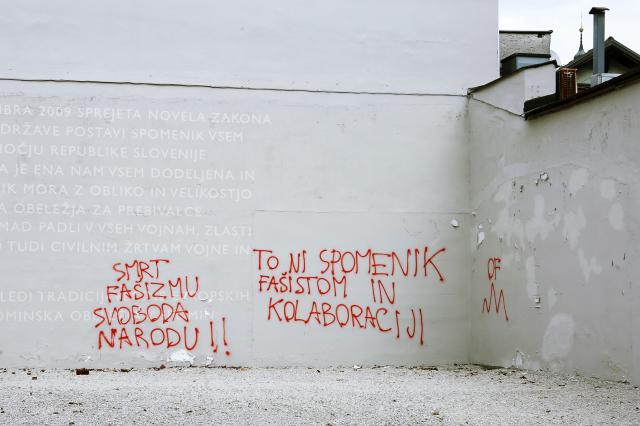 BRA 2009 SPREJETA NOVELA ZAKONA
DRŽAVE POSTAVI SPOMENIK VSEM
OČJU REPUBLIKE SLOVENIJE
A JE ENA NAM VSEM DODELJENA IN
IK MORA Z OBLIKO IN VELIKOSTJO
A OBELEŽJA ZA PREBIVALCE
MAD PADLI V VSEH VOJNAH, ZLASTI
O TUDI CIVILNIM ŽRTVAM VOJNE IN
LEDI TRADICIJI
OMINSKA
SMRT
FAŠIZMU
SVOBODA
NARODU!!
TO NI SPOMENIK
FAŠISTOM IN
KOLABORACIJI
OF